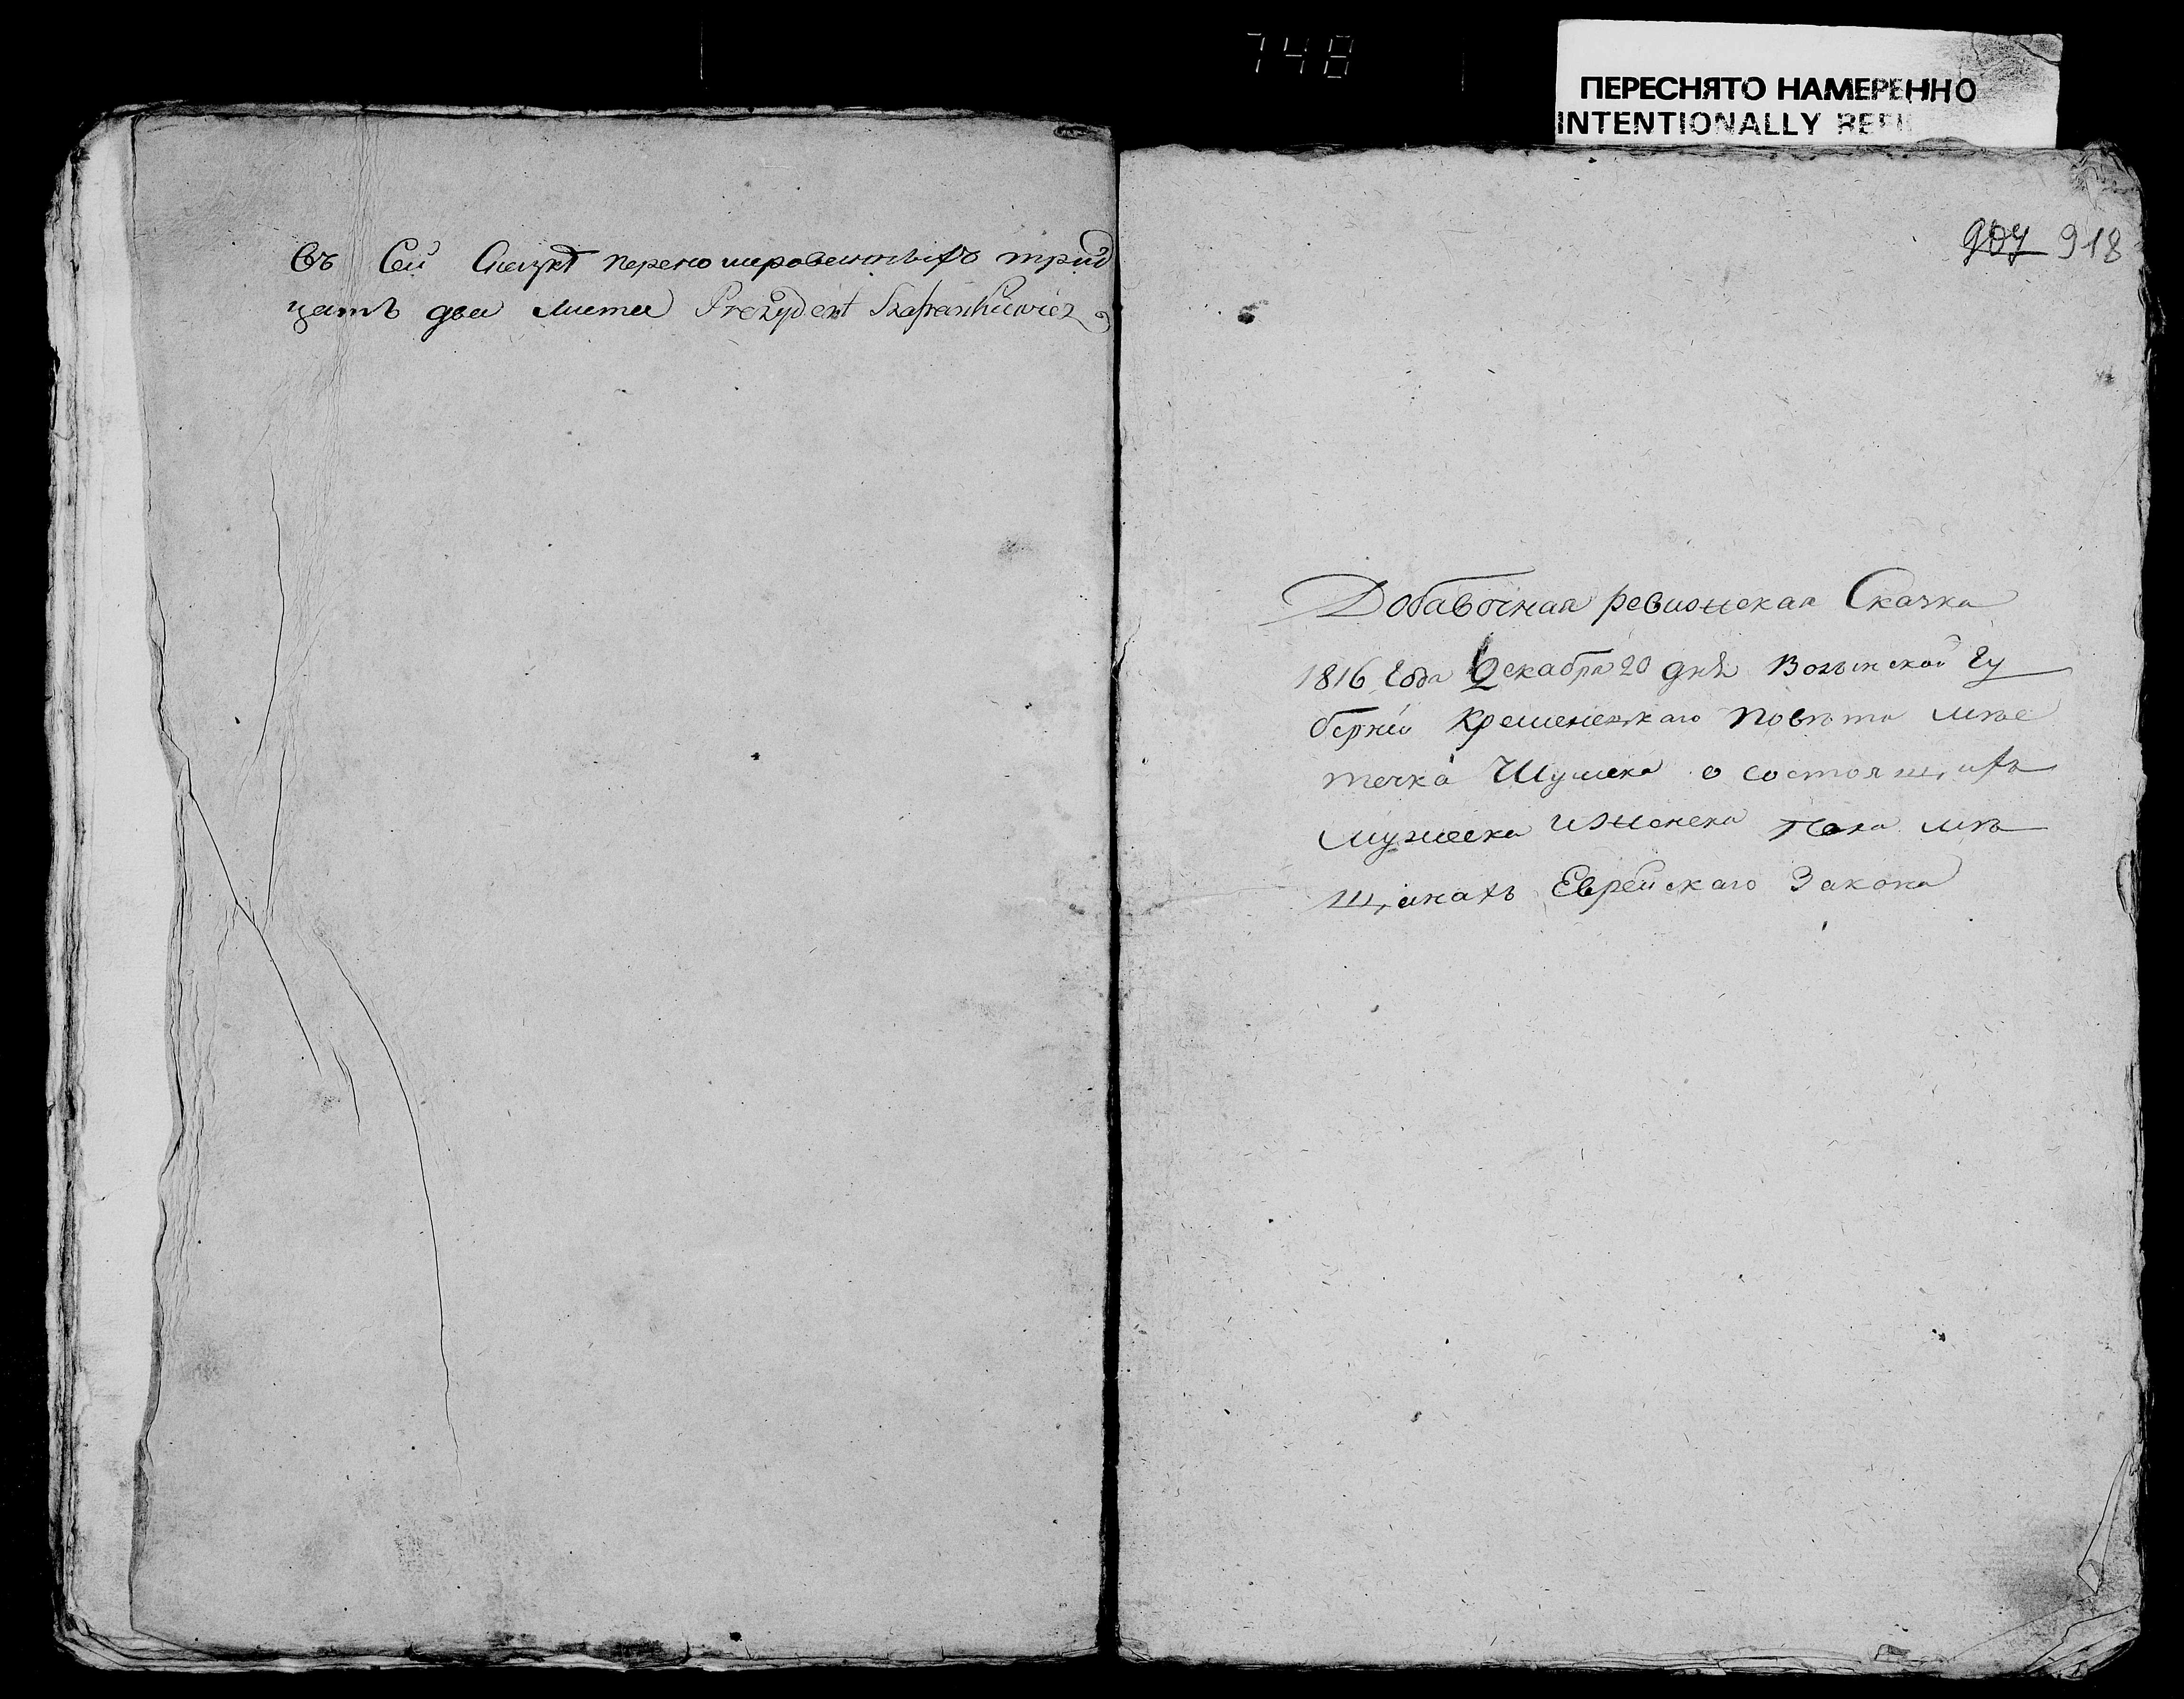 748
ПЕРЕСНЯТО НАМЕРЕННО
INTENTIONALLY REFI
Въ Сей Сказкѣ переномированныхъ трид
цать два листа Prezydent Szafrankiewicz
907 918
Добавочная ревизская Сказка
1816 Года Декабря 20 дня Волынской Гу
берніи Кременецкаго Повѣта мѣс
течка Шумска о состоящихъ
мужеска иженска пола мѣ
щанахъ Еврейскаго Закона